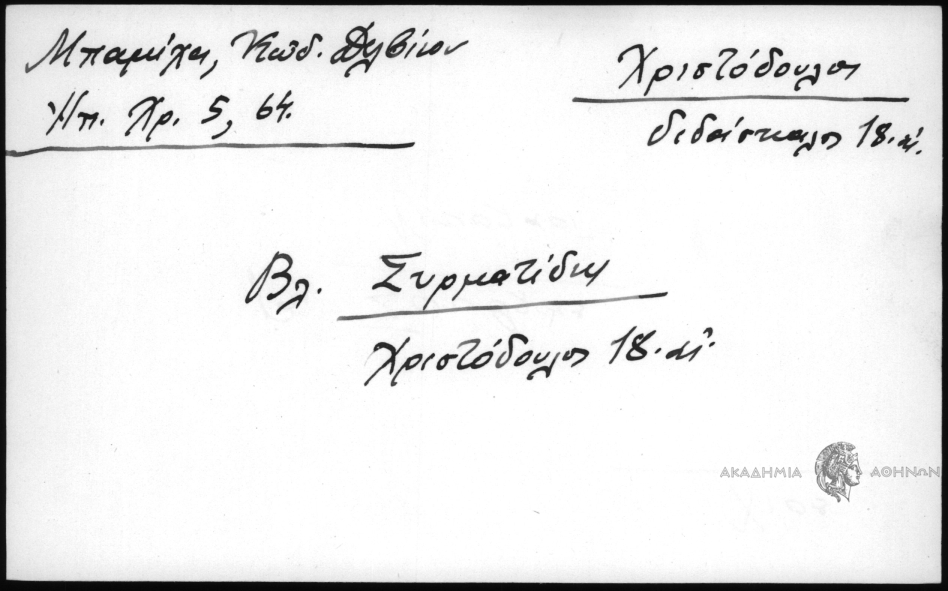 Μπαμίχα, Κωδ. Δελβίνου
Ηπ. Χρ. 5, 64.
Χριστόδουλος
διδάσκαλος 18. αἰ.
Βλ. Συρματίδης
Χριστόδουλος 18. αἰ.
ΑΚΑΔΗΜΙΑ ΑΘΗΝΩΝ